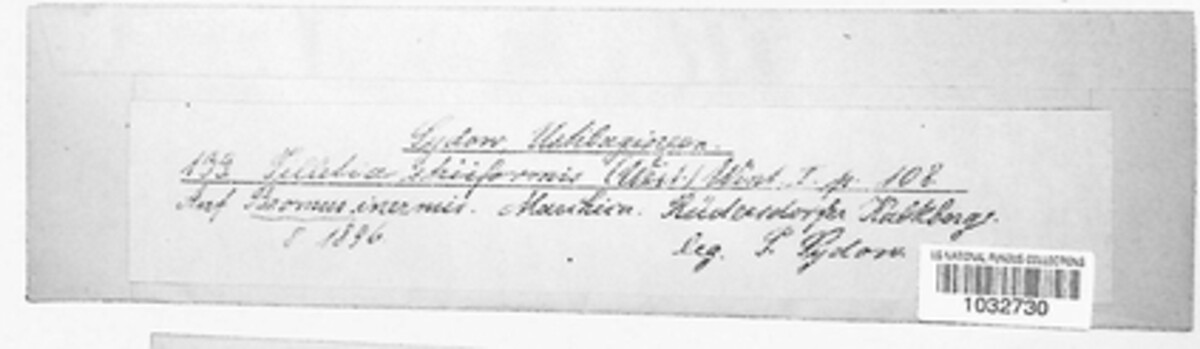 Sydow, Ustilagineen.
199 Tilletia striiformis (West.) Wint. I. p. 108
Auf Bromus inermis. Marchica. Rüdersdorfer Kalkberge.
8 1896
leg. P. Sydow.
US NATIONAL FUNGUS COLLECTIONS
1032730